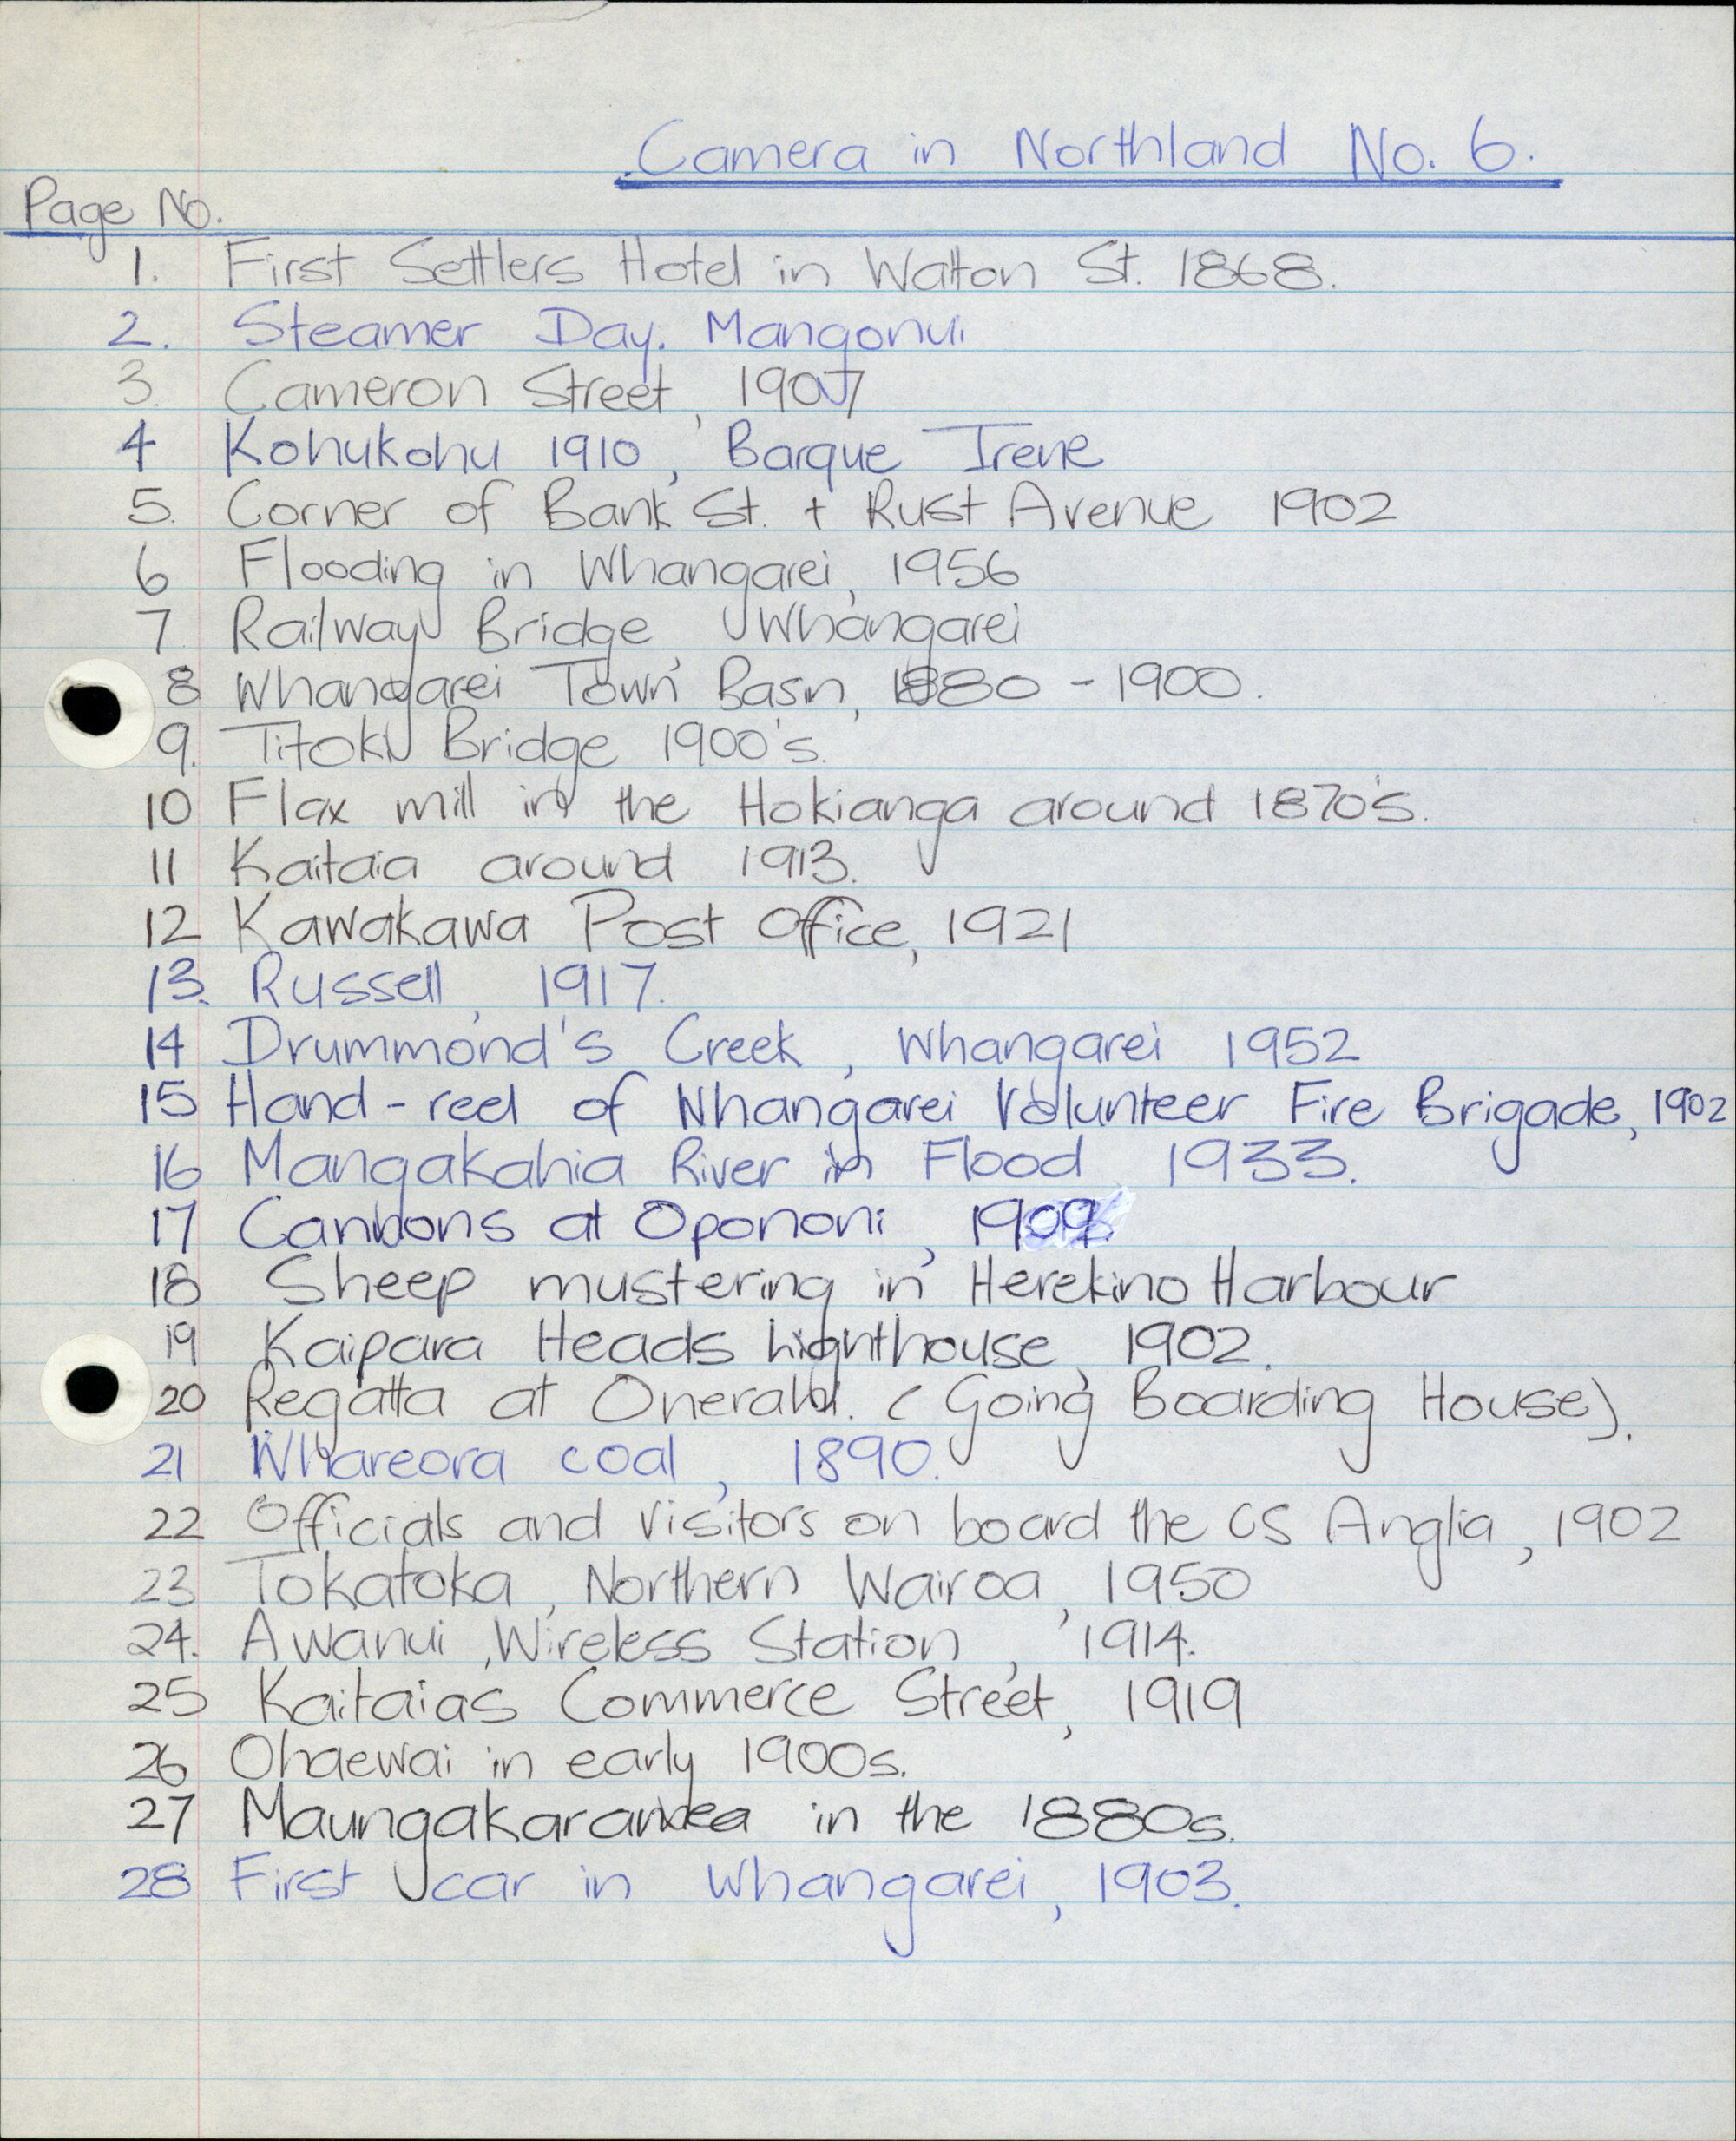 Camera in Northland No. 6.
Page No.
1. First Settlers Hotel in Walton St. 1868.
2. Steamer Day. Mangonui
3. Cameron Street, 1907
4 Kohukohu 1910, Barque Irene
5. Corner of Bank St. + Rust Avenue 1902
6 Flooding in Whangarei, 1956
7 Railway Bridge, Whangarei
8 Whangarei Town Basin, 1880 - 1900.
9. Titoki Bridge 1900's.
10 Flax mill in the Hokianga around 1870's.
11 Kaitaia around 1913.
12 Kawakawa Post Office, 1921
13. Russell, 1917.
14 Drummond's Creek, Whangarei 1952
15 Hand-reel of Whangarei Volunteer Fire Brigade, 1902
16 Mangakahia River in Flood 1933.
17 Cannons at Opononi, 1909.
18 Sheep mustering in Herekino Harbour
19 Kaipara Heads Lighthouse, 1902.
20 Regatta at Onerahi. (Going Boarding House).
21 Whareora coal, 1890.
22 Officials and visitors on board the CS Anglia, 1902
23 Tokatoka, Northern Wairoa, 1950
24. Awanui, Wireless Station, 1914.
25 Kaitaias Commerce Street, 1919
26 Ohaewai in early 1900s.
27 in the 1880s.
28 First car in Whangarei, 1903.